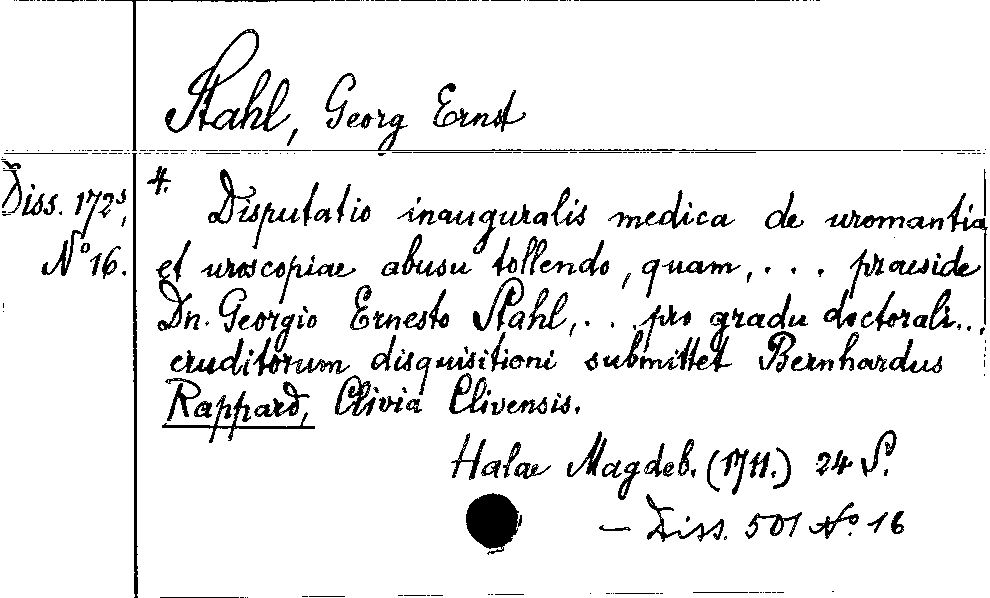 Stahl, Georg Ernst
Diss. 172⁵,
N° 16.
4. Disputatio inauguralis medica de uromantia
et uroscopiae abusu tollendo, quam, . . . praeside
Dn. Georgio Ernesto Stahl, . . . pro gradu doctorali...
eruditorum disquisitioni submittet Bernhardus
Rappard, Clivia Clivensis.
Halae Magdeb. (1711.) 24 S.
— Diss. 501 N° 16